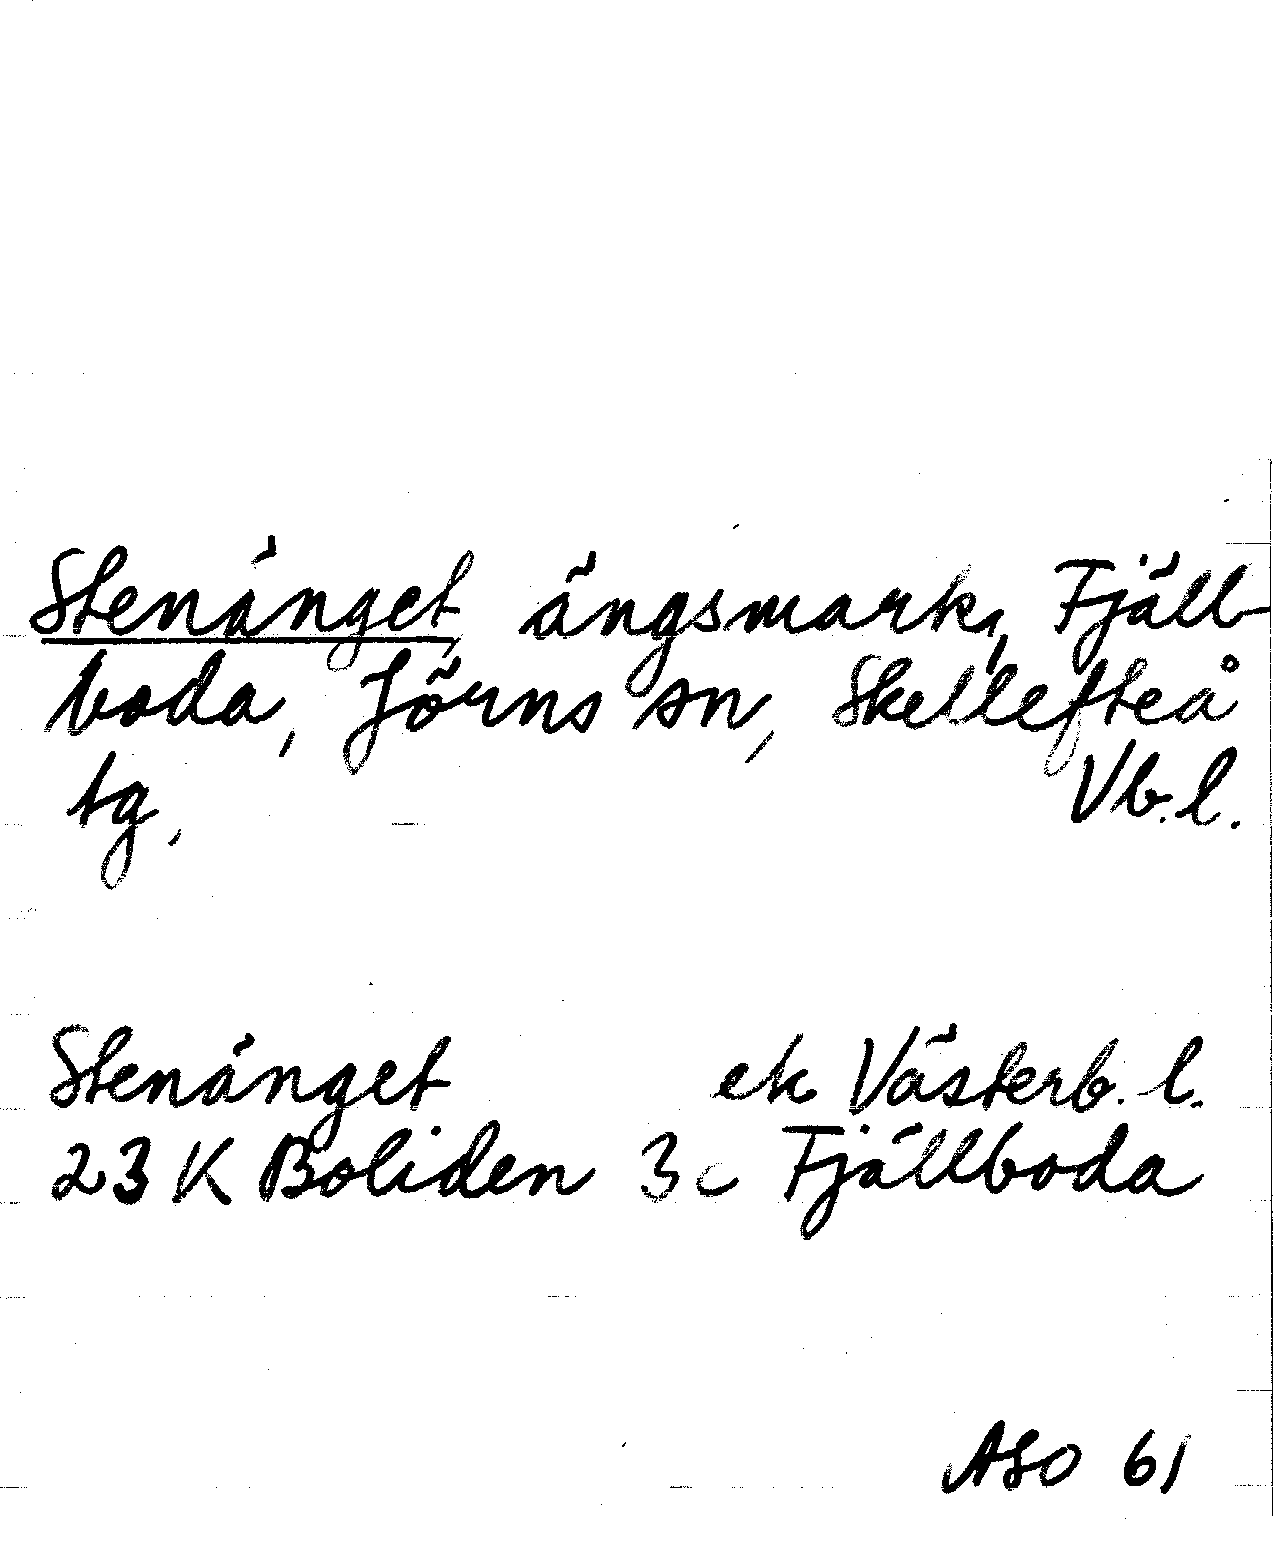 Stenänget, ängsmark, Fjäll-
boda, Jörns sn, Skellefteå
tg, Vb.l.
Stenänget ek Västerb. l.
23 K Boliden 3c Fjällboda
ASO 61